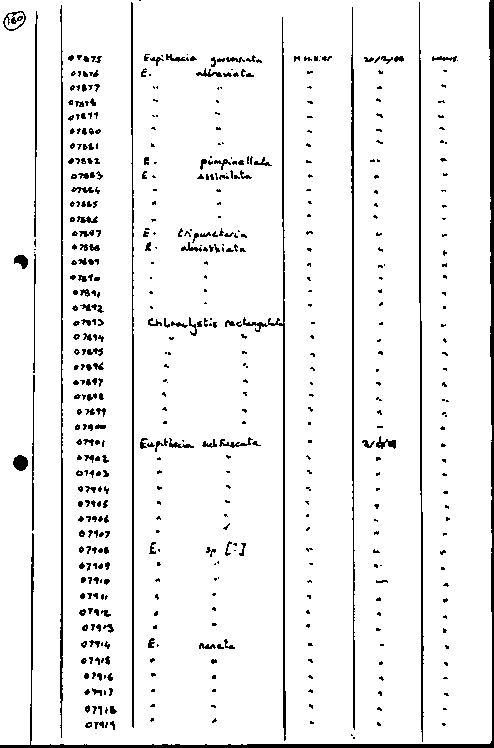 160
07875 Eupithecia
07876 E. abbreviata " " "
07877 " " " " "
07878 " " " " "
07879 " " " " "
07880 " " " " "
07881 " " " " "
07882 E. pimpinellata " " "
07883 E. assimilata " " "
07884 " " " " "
07885 " " " " "
07886 " " " " "
07887 E. tripunctaria " " "
07888 E. absinthiata " " "
07889 " " " " "
07890 " " " " "
07891 " " " " "
07892 " " " " "
07893 Chloroclystis rectangulata " " "
07894 " " " " "
07895 " " " " "
07896 " " " " "
07897 " " " " "
07898 " " " " "
07899 " " " " "
07900 " " " " "
07901 Eupithecia subfuscata " "
07902 " " " " "
07903 " " " " "
07904 " " " " "
07905 " " " " "
07906 " " " " "
07907 " " " " "
07908 E. sp [?] " " "
07909 " " " " "
07910 " " " " "
07911 " " " " "
07912 " " " " "
07913 " " " " "
07914 E. nanata " " "
07915 " " " " "
07916 " " " " "
07917 " " " " "
07918 " " " " "
07919 " " " " "